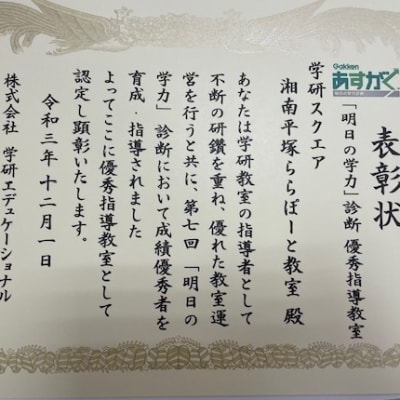 表彰状
Gakken
あすがく
「明日の学力」診断 優秀指導教室
学研スクエア
湘南平塚ららぽーと教室 殿
あなたは学研教室の指導者として
不断の研鑽を重ね、優れた教室運
営を行うと共に、第七回 「明日の
学力」診断において成績優秀者を
育成・指導されました
よってここに優秀指導教室として
認定し顕彰いたします。
令和三年 十二月一日
株式会社 学研エデュケーショナル